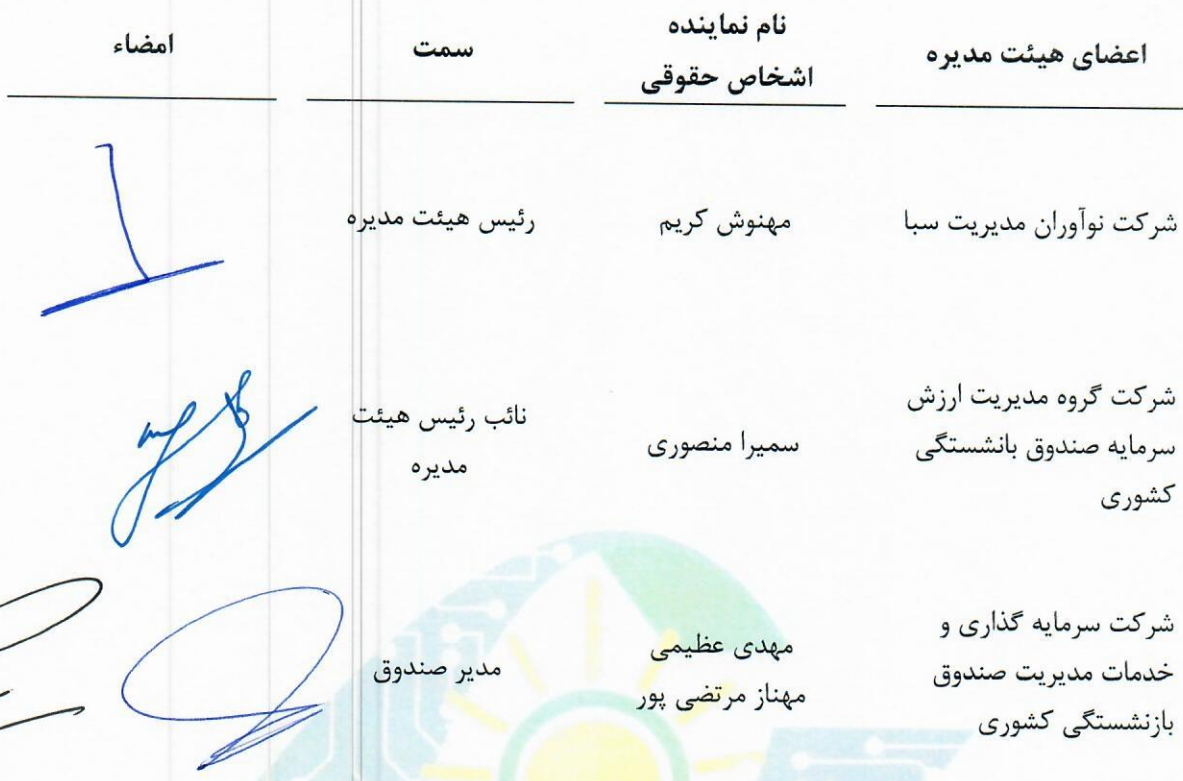 اعضای هیئت مدیره
نام نماینده
اشخاص حقوقی
سمت
امضاء
شرکت نوآوران مدیریت سبا
مهنوش کریم
رئیس هیئت مدیره
شرکت گروه مدیریت ارزش
سرمایه صندوق بانشستگی
کشوری
سمیرا منصوری
نائب رئیس هیئت
مدیره
شرکت سرمایه گذاری و
خدمات مدیریت صندوق
بازنشستگی کشوری
مهدی عظیمی
مهناز مرتضی پور
مدیر صندوق